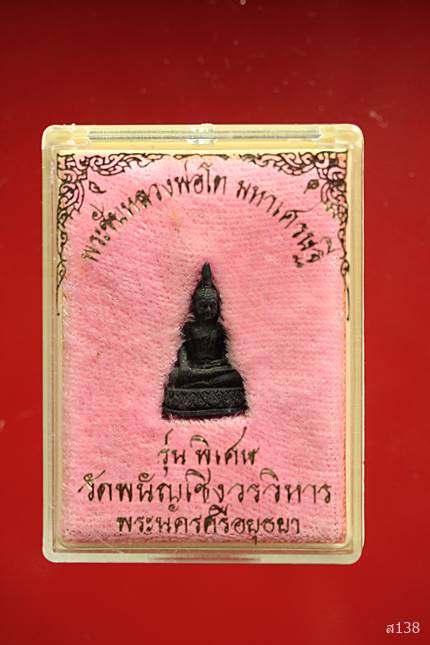 พระชัยหลวงพ่อโต มหาเศรษฐี
รุ่น พิเศษ
วัดพนัญเชิงวรวิหาร
พระนครศรีอยุธยา
ส138